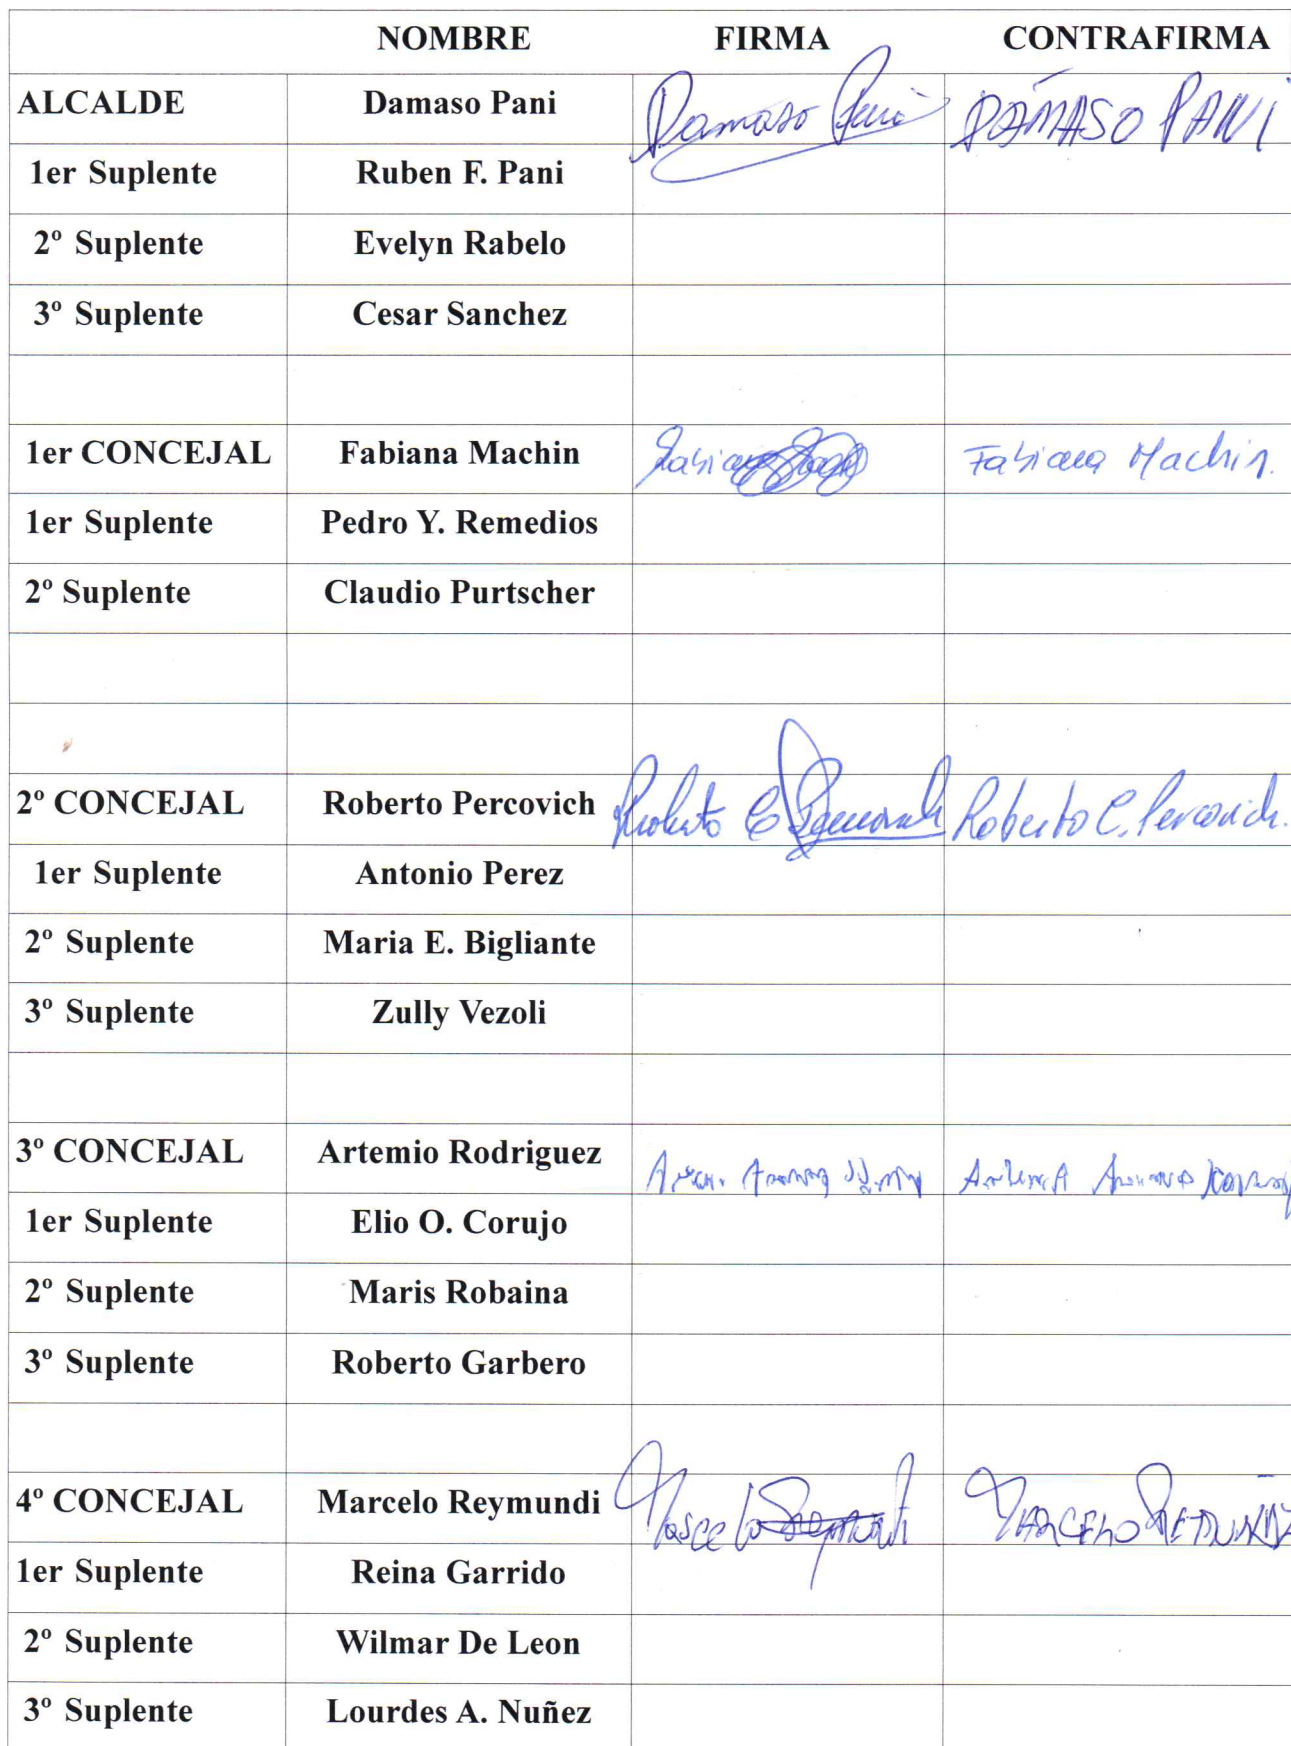 NOMBRE FIRMA CONTRAFIRMA
ALCALDE Damaso Pani Damaso Pani DAMASO PANI
1er Suplente Ruben F. Pani
2º Suplente Evelyn Rabelo
3º Suplente Cesar Sanchez
1er CONCEJAL Fabiana Machin Fabiana Fabiana Machin.
1er Suplente Pedro Y. Remedios
2º Suplente Claudio Purtscher
2º CONCEJAL Roberto Percovich Roberto C Percovich Roberto C. Percovich.
1er Suplente Antonio Perez
2º Suplente Maria E. Bigliante
3º Suplente Zully Vezoli
3º CONCEJAL Artemio Rodriguez
1er Suplente Elio O. Corujo
2º Suplente Maris Robaina
3º Suplente Roberto Garbero
4º CONCEJAL Marcelo Reymundi Marcelo MARCELO
1er Suplente Reina Garrido
2º Suplente Wilmar De Leon
3º Suplente Lourdes A. Nuñez